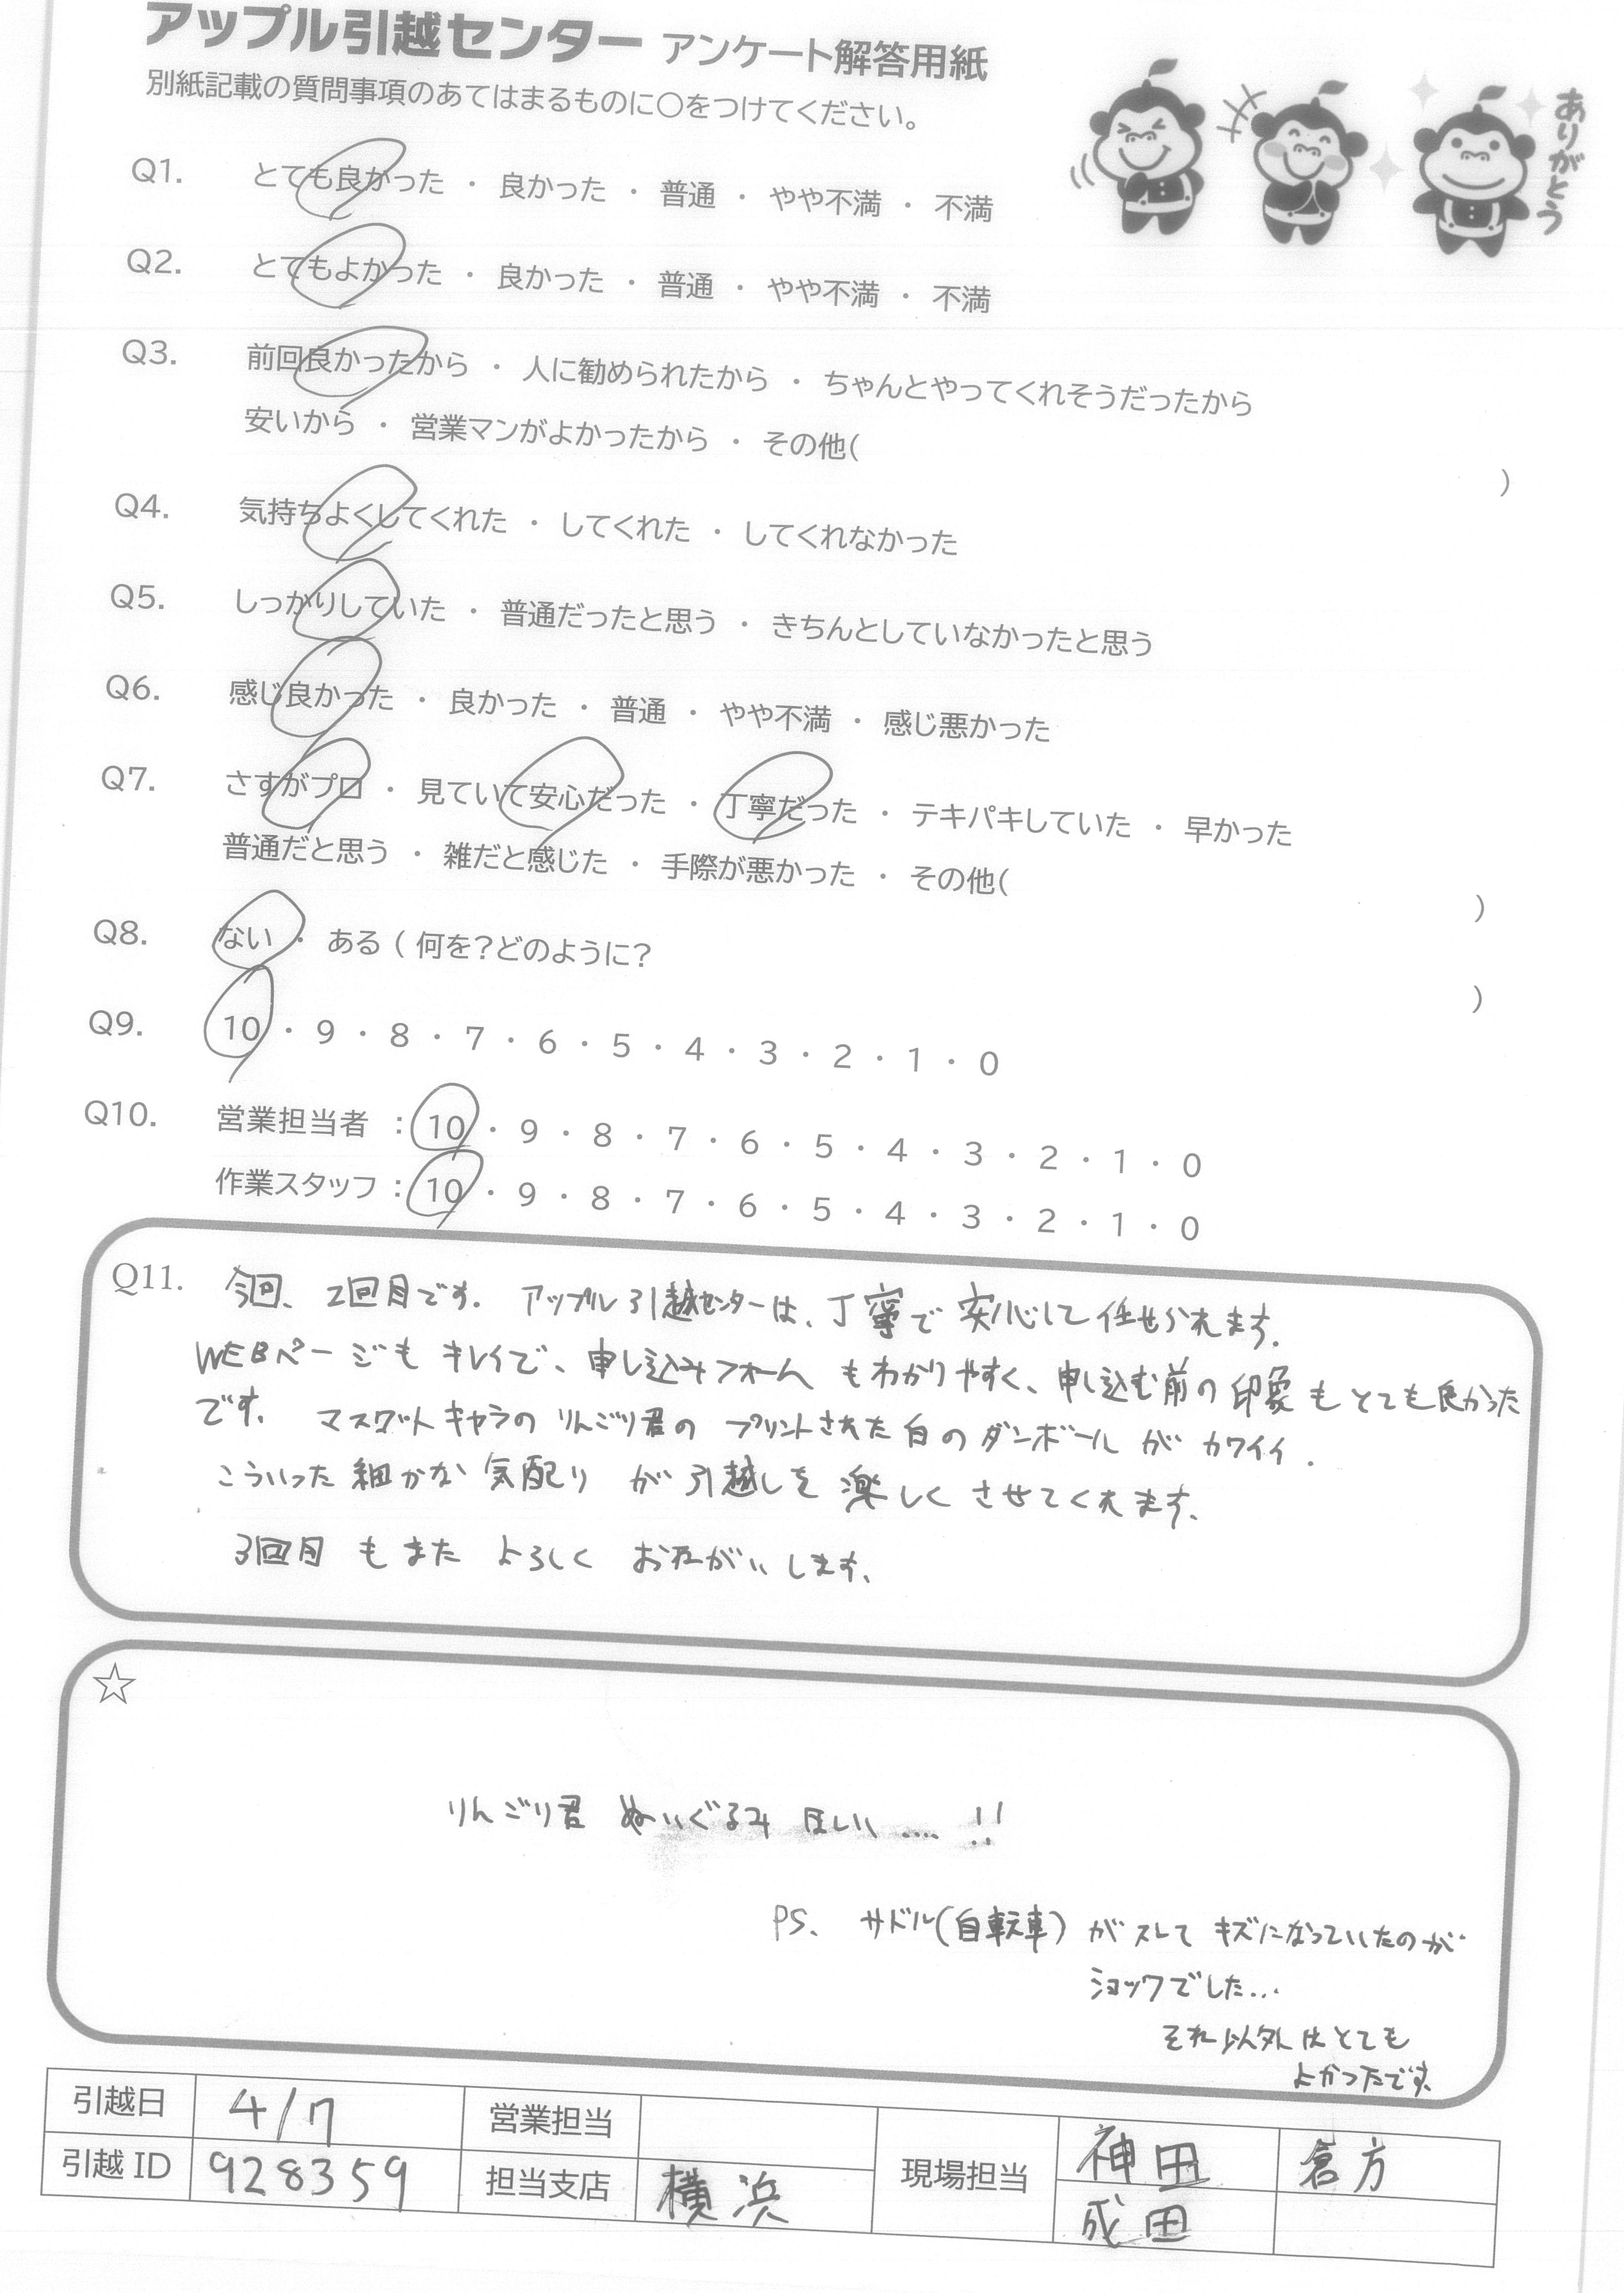 アップル引越センター アンケート解答用紙
別紙記載の質問事項のあてはまるものに〇をつけてください。
ありがとう
Q1. とても良かった ・ 良かった ・ 普通 ・ やや不満 ・ 不満
Q2. とてもよかった ・ 良かった ・ 普通 ・ やや不満 ・ 不満
Q3. 前回良かったから ・ 人に勧められたから ・ ちゃんとやってくれそうだったから
安いから ・ 営業マンがよかったから ・ その他( )
Q4. 気持ちよくしてくれた ・ してくれた ・ してくれなかった
Q5. しっかりしていた ・ 普通だったと思う ・ きちんとしていなかったと思う
Q6. 感じ良かった ・ 良かった ・ 普通 ・ やや不満 ・ 感じ悪かった
Q7. さすがプロ ・ 見ていて安心だった ・ 丁寧だった ・ テキパキしていた ・ 早かった
普通だと思う ・ 雑だと感じた ・ 手際が悪かった ・ その他( )
Q8. ない ・ ある ( 何を?どのように? )
Q9. 10 ・ 9 ・ 8 ・ 7 ・ 6 ・ 5 ・ 4 ・ 3 ・ 2 ・ 1 ・ 0
Q10. 営業担当者 : 10 ・ 9 ・ 8 ・ 7 ・ 6 ・ 5 ・ 4 ・ 3 ・ 2 ・ 1 ・ 0
作業スタッフ : 10 ・ 9 ・ 8 ・ 7 ・ 6 ・ 5 ・ 4 ・ 3 ・ 2 ・ 1 ・ 0
Q11. 今回、2回目です。アップル引越センターは、丁寧で安心して任せられます。
WEBページもキレイで、申し込みフォームもわかりやすく、申し込む前の印象もとても良かった
です。マスコットキャラのりんごり君のプリントされた白のダンボールがカワイイ.
こういった細かな気配りが引越しを楽しくさせてくれます。
3回目もまたよろしくおねがいします。
☆
りんごり君 ぬいぐるみ ほしい....!!
PS、サドル(自転車)がスレてキズになっていたのが
ショックでした...
それ以外はとても
よかったです。
引越日 4/7 営業担当 現場担当 神田 倉方
引越ID 928359 担当支店 横浜 成田